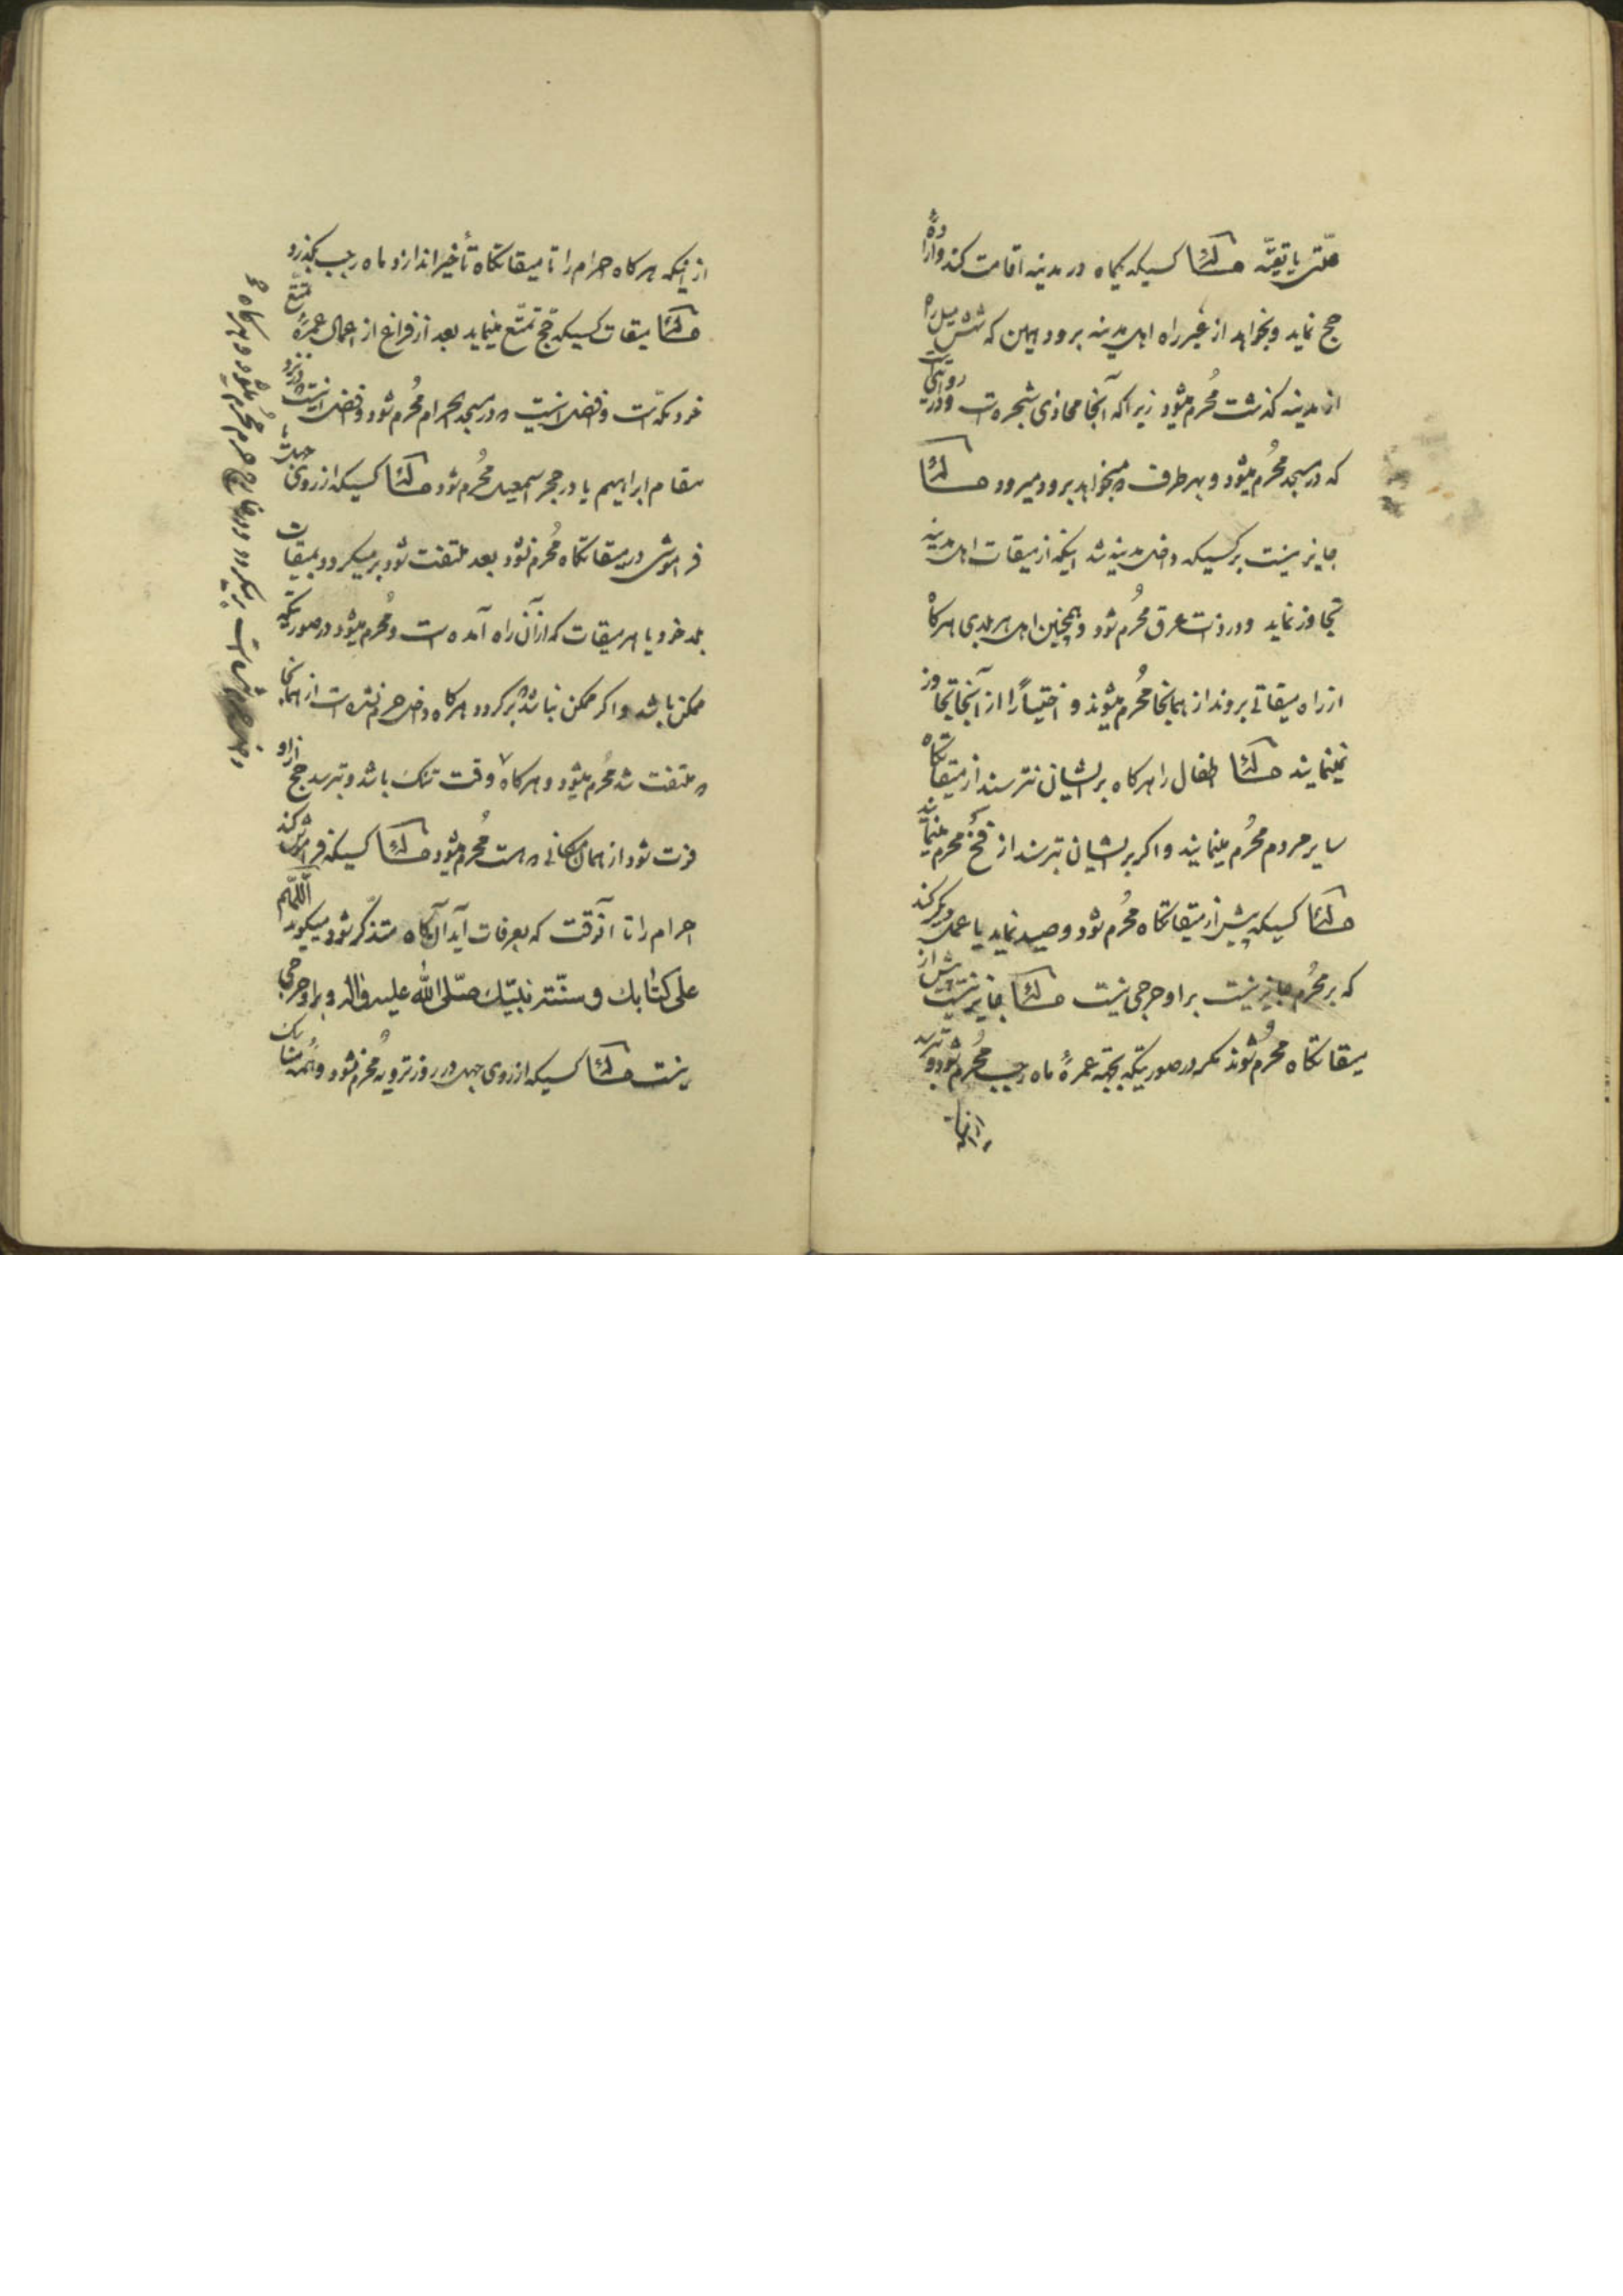 علّتی یا تقیّه مسئلة کسیکه یکماه در مدینه اقامت کند و ارادهٔ
حج نماید و بخواهد از غیر راه اهل مدینه برود همین که شش میل راه
از مدینه گذشت مُحرم میشود زیرا که آنجا محاذی شجره است و در روایتی
که در مسجد مُحرم میشود و بهر طرف که میخواهد برود میرود مسئلة
جایز نیست بر کسیکه داخل مدینه شد اینکه از میقات اهل مدینه
تجاوز نماید و در ذات عرق مُحرم شود و همچنین اهل هر بلدی هرگاه
از راه میقاتی بروند از همانجا مُحرم میشوند و اختیاراً از آنجا تجاوز
نمینمایند مسئلة اطفال را هرگاه بر ایشان نترسند از میقاتگاه
سایر مردم مُحرم مینمایند و اگر بر ایشان بترسند از فخّ محرم مینمایند
مسئلة کسیکه پیش از میقاتگاه مُحرم شود و صید نماید یا عمل دیگر کند
که بر مُحرم جایز نیست بر او حرجی نیست مسئلة جایز نیست پیش از
میقاتگاه محرم شوند مگر در صورتیکه بجهة عمرهٔ ماه رجب مُحرم شود و بترسد
از اینکه هرگاه احرام را تا میقاتگاه تأخیر اندازد ماه رجب بگذرد
مسئلة میقات کسیکه حجّ تمتّع مینماید بعد از فراغ از اعمال عمرهٔ تمتّع
خود مکّه است و افضل اینست که در مسجد الحرام مُحرم شود و افضل اینست که در نزد
مقام ابراهیم یا در حجر اسمعیل مُحرم شود مسئلة کسیکه از روی جهل یا
فراموشی در میقاتگاه مُحرم نشود بعد ملتفت شود برمیگردد بمیقات
بلد خود یا هر میقات که از آن راه آمده است و مُحرم میشود در صورتیکه
ممکن باشد و اگر ممکن نباشد برگردد هرگاه داخل حرم نشده است از همانجا
که ملتفت شد مُحرم میشود و هرگاه وقت تنگ باشد و بترسد حج از او
فوت شود از همان مکانی که هست مُحرم میشود مسئلة کسیکه فراموش کند
احرام را تا آنوقت که بعرفات آید آنگاه متذکّر شود میگوید اللّهمّ
علی کتابك و سنّة نبیّك صلّی اللّه علیه و اله و بر او حرجی
نیست مسئلة کسیکه از روی جهل در روز ترویه مُحرم نشود و همهٔ مناسک